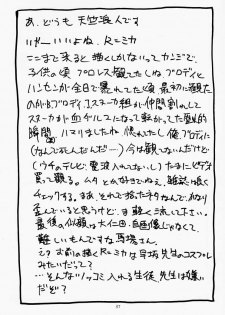 あ、どうも 天竺浪人です
いげーいいよね、Rーミカ
ここまで来ると描くしかないってカンジで
子供の頃プロレス観てたしねブロディと
ハンセンが全日で暴れてた頃 最初に観た
のがBブロディJスヌーカ組が仲間割れして
スヌーカが血ダルマになって転がってた劇的
瞬間 ハマリましたね 惚れたし俺 ブロディに
(なんで死んだんだ…)今は観てないんだけど
(ウチのテレビ、電波入れてないし)たまにビデオ
買って観る。ムタ とか好きでねぇ、雑誌は良く
チェックする。まあ、それで捨ったネタなんで、かなり
歪んでいると思うけど、ま軽く流して下さい。
最後の似顔は大仁田、自画像じゃなくて、
難しいもんですな馬場さん
えっ お前の描くRーミカは早坂先生のコスプレ
みたいだって?
…そんなツッコミ入れる生徒、先生は嫌い
だぞ?
27